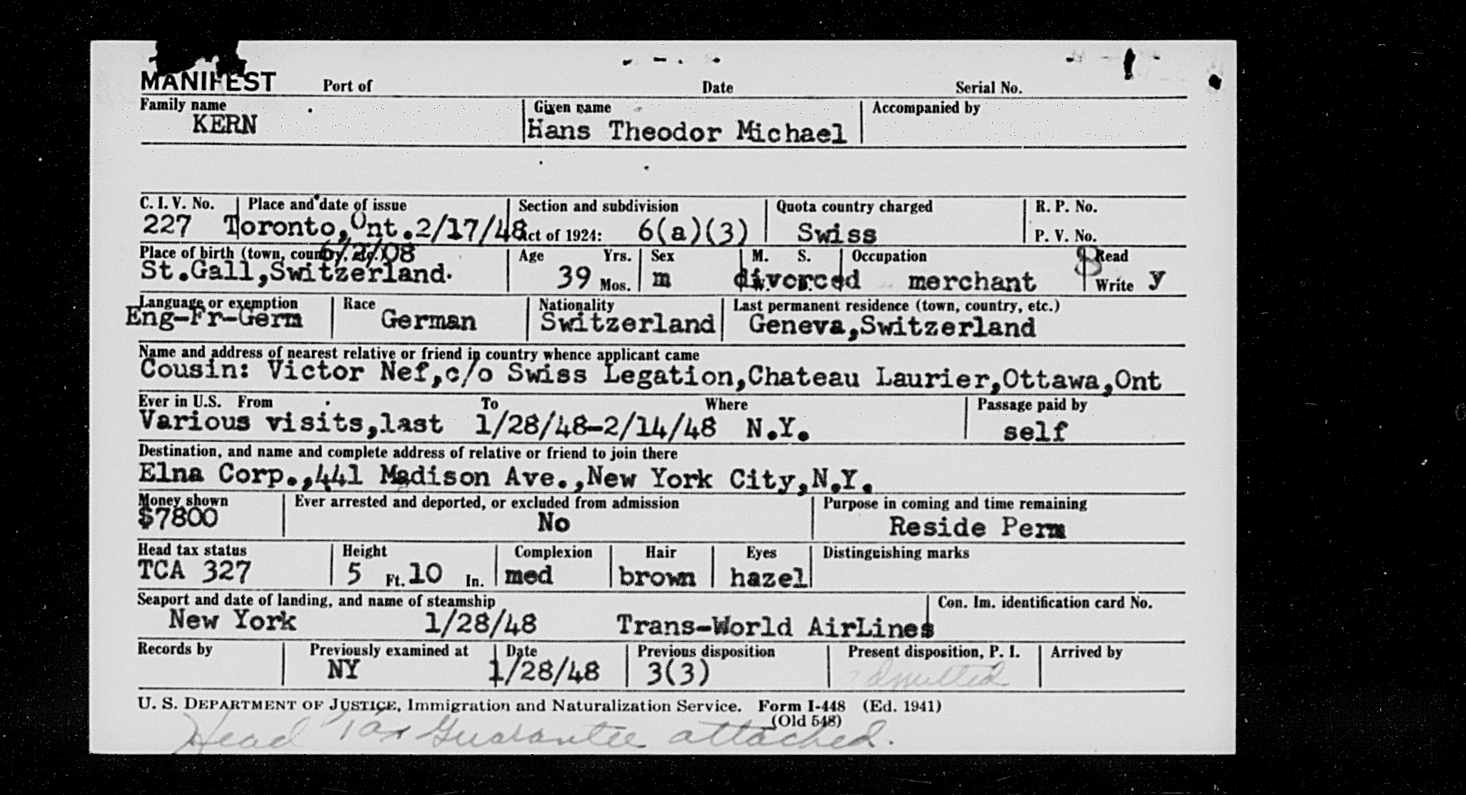 MANIFEST Port of Date Serial No.
Family name Given name Accompanied by
KERN Hans Theodor Michael
C. I. V. No. Place and date of issue Section and subdivision Quota country charged R. P. No.
227 Toronto,Ont.2/17/48 Act of 1924: 6(a)(3) Swiss P. V. No.
Place of birth (town, country, etc.) Age Yrs. Sex M. S. Occupation Read
St.Gall,Switzerland. 39 Mos. m divorced merchant Write y
Language or exemption Race Nationality Last permanent residence (town, country, etc.)
Eng-Fr-Germ German Switzerland Geneva,Switzerland
Name and address of nearest relative or friend in country whence applicant came
Cousin: Victor Nef,c/o Swiss Legation,Chateau Laurier,Ottawa,Ont
Ever in U.S. From To Where Passage paid by
Various visits,last 1/28/48-2/14/48 N.Y. self
Destination, and name and complete address of relative or friend to join there
Elna Corp.,441 Madison Ave.,New York City,N.Y.
Money shown Ever arrested and deported, or excluded from admission Purpose in coming and time remaining
$7800 No Reside Perm
Head tax status Height Complexion Hair Eyes Distinguishing marks
TCA 327 5 Ft. 10 In. med brown hazel
Seaport and date of landing, and name of steamship Con. Im. identification card No.
New York 1/28/48 Trans-World AirLines
Records by Previously examined at Date Previous disposition Present disposition, P. I. Arrived by
NY 1/28/48 3(3) admitted
U. S. DEPARTMENT OF JUSTICE, Immigration and Naturalization Service. Form I-448 (Ed. 1941)
(Old 548)
Head Tax Guarantee attached.